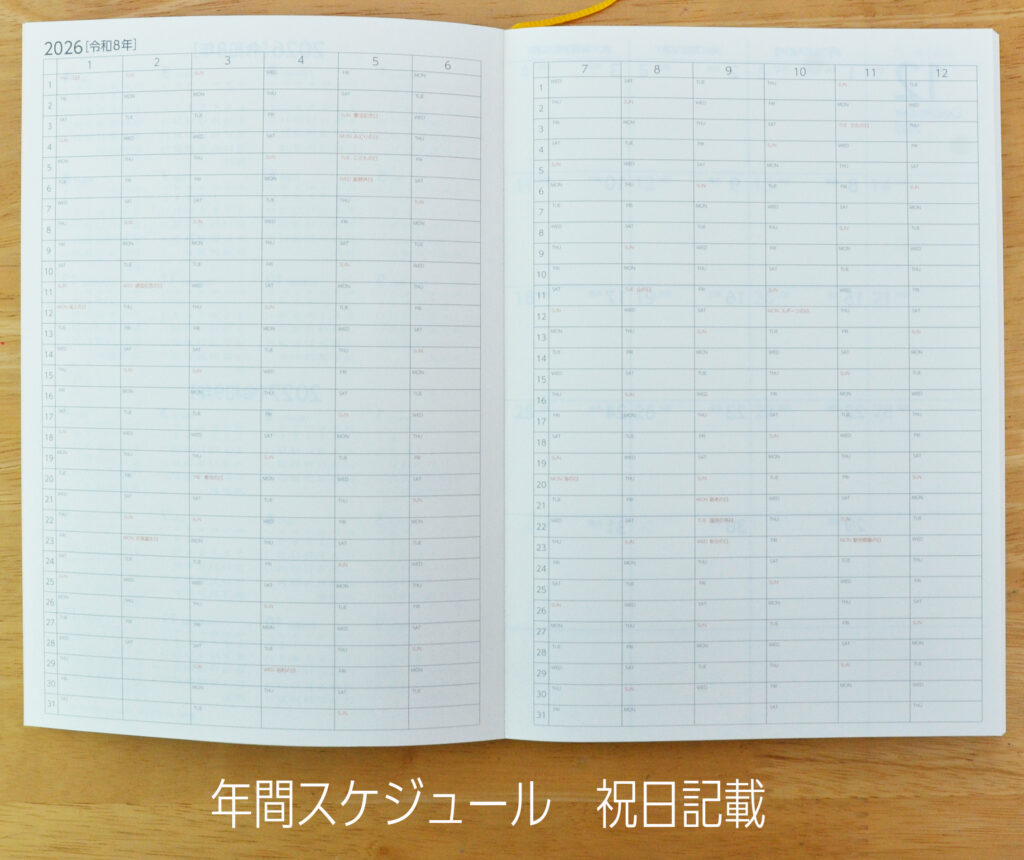 2026 [令和8年]
1 2 3 4 5 6
1 THU 元日 SUN SUN WED FRI MON
2 FRI MON MON THU SAT TUE
3 SAT TUE TUE FRI SUN 憲法記念日 WED
4 SUN WED WED SAT MON みどりの日 THU
5 MON THU THU SUN TUE こどもの日 FRI
6 TUE FRI FRI MON WED 振替休日 SAT
7 WED SAT SAT TUE THU SUN
8 THU SUN SUN WED FRI MON
9 FRI MON MON THU SAT TUE
10 SAT TUE TUE FRI SUN WED
11 SUN WED 建国記念の日 WED SAT MON THU
12 MON 成人の日 THU THU SUN TUE FRI
13 TUE FRI FRI MON WED SAT
14 WED SAT SAT TUE THU SUN
15 THU SUN SUN WED FRI MON
16 FRI MON MON THU SAT TUE
17 SAT TUE TUE FRI SUN WED
18 SUN WED WED SAT MON THU
19 MON THU THU SUN TUE FRI
20 TUE FRI FRI 春分の日 MON WED SAT
21 WED SAT SAT TUE THU SUN
22 THU SUN SUN WED FRI MON
23 FRI MON 天皇誕生日 MON THU SAT TUE
24 SAT TUE TUE FRI SUN WED
25 SUN WED WED SAT MON THU
26 MON THU THU SUN TUE FRI
27 TUE FRI FRI MON WED SAT
28 WED SAT SAT TUE THU SUN
29 THU SUN WED 昭和の日 FRI MON
30 FRI MON THU SAT TUE
31 SAT TUE SUN
7 8 9 10 11 12
1 WED SAT TUE THU SUN TUE
2 THU SUN WED FRI MON WED
3 FRI MON THU SAT TUE 文化の日 THU
4 SAT TUE FRI SUN WED FRI
5 SUN WED SAT MON THU SAT
6 MON THU SUN TUE FRI SUN
7 TUE FRI MON WED SAT MON
8 WED SAT TUE THU SUN TUE
9 THU SUN WED FRI MON WED
10 FRI MON THU SAT TUE THU
11 SAT TUE 山の日 FRI SUN WED FRI
12 SUN WED SAT MON スポーツの日 THU SAT
13 MON THU SUN TUE FRI SUN
14 TUE FRI MON WED SAT MON
15 WED SAT TUE THU SUN TUE
16 THU SUN WED FRI MON WED
17 FRI MON THU SAT TUE THU
18 SAT TUE FRI SUN WED FRI
19 SUN WED SAT MON THU SAT
20 MON 海の日 THU SUN TUE FRI SUN
21 TUE FRI MON 敬老の日 WED SAT MON
22 WED SAT TUE 国民の休日 THU SUN TUE
23 THU SUN WED 秋分の日 FRI MON 勤労感謝の日 WED
24 FRI MON THU SAT TUE THU
25 SAT TUE FRI SUN WED FRI
26 SUN WED SAT MON THU SAT
27 MON THU SUN TUE FRI SUN
28 TUE FRI MON WED SAT MON
29 WED SAT TUE THU SUN TUE
30 THU SUN WED FRI MON WED
31 FRI MON SAT THU
年間スケジュール 祝日記載